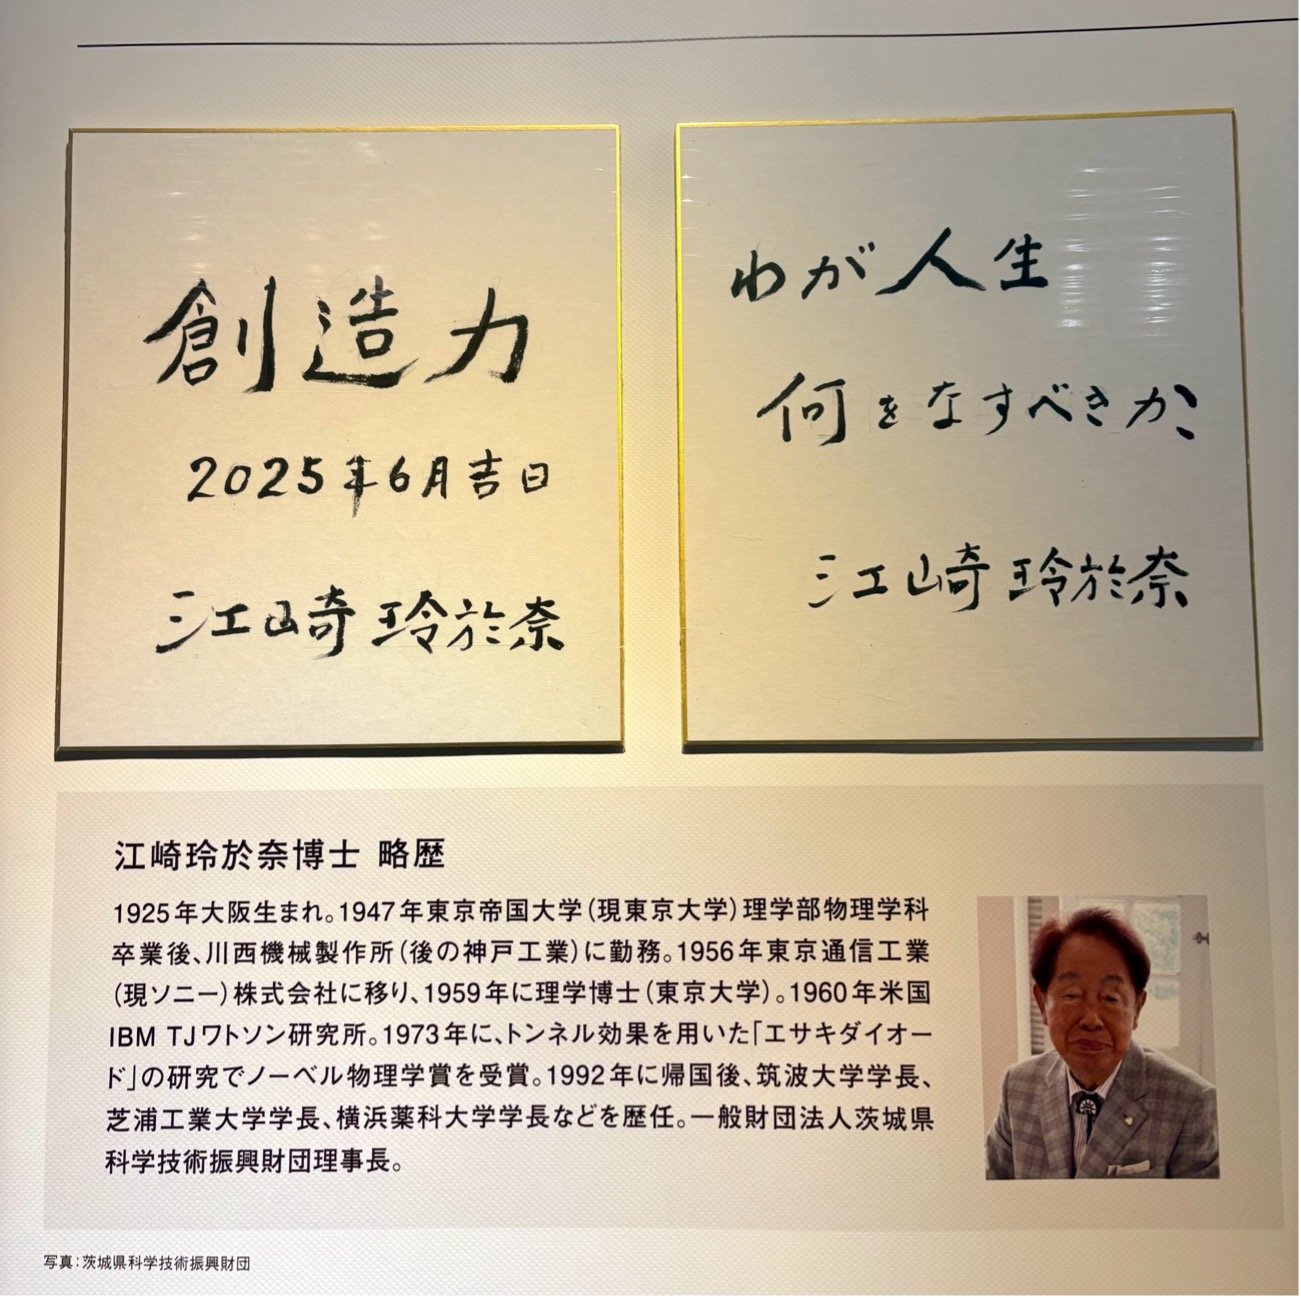 創造力
2025年6月吉日
江崎玲於奈
わが人生
何をなすべきか
江崎玲於奈
江崎玲於奈博士 略歴
1925年大阪生まれ。1947年東京帝国大学(現東京大学)理学部物理学科
卒業後、川西機械製作所(後の神戸工業)に勤務。1956年東京通信工業
(現ソニー)株式会社に移り、1959年に理学博士(東京大学)。1960年米国
IBM TJワトソン研究所。1973年に、トンネル効果を用いた「エサキダイオー
ド」の研究でノーベル物理学賞を受賞。1992年に帰国後、筑波大学学長、
芝浦工業大学学長、横浜薬科大学学長などを歴任。一般財団法人茨城県
科学技術振興財団理事長。
写真:茨城県科学技術振興財団